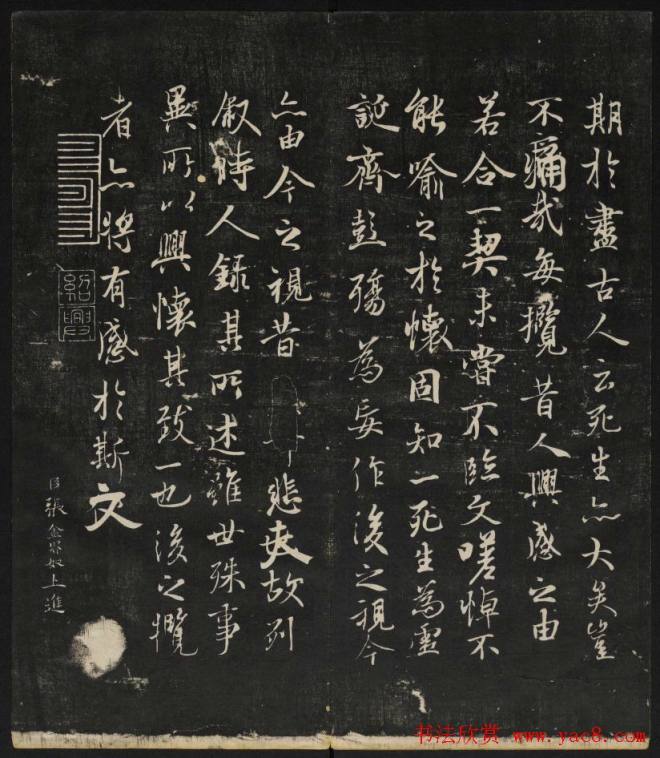 期於盡古人云死生亦大矣豈
不痛哉每攬昔人興感之由
若合一契未嘗不臨文嗟悼不
能喻之於懷固知一死生為虛
誕齊彭殤為妄作後之視今
亦由今之視昔悲夫故列
敘時人錄其所述雖世殊事
異所以興懷其致一也後之攬
者亦將有感於斯文
臣張金界奴上進
紹興
书法欣赏 www.yac8.com